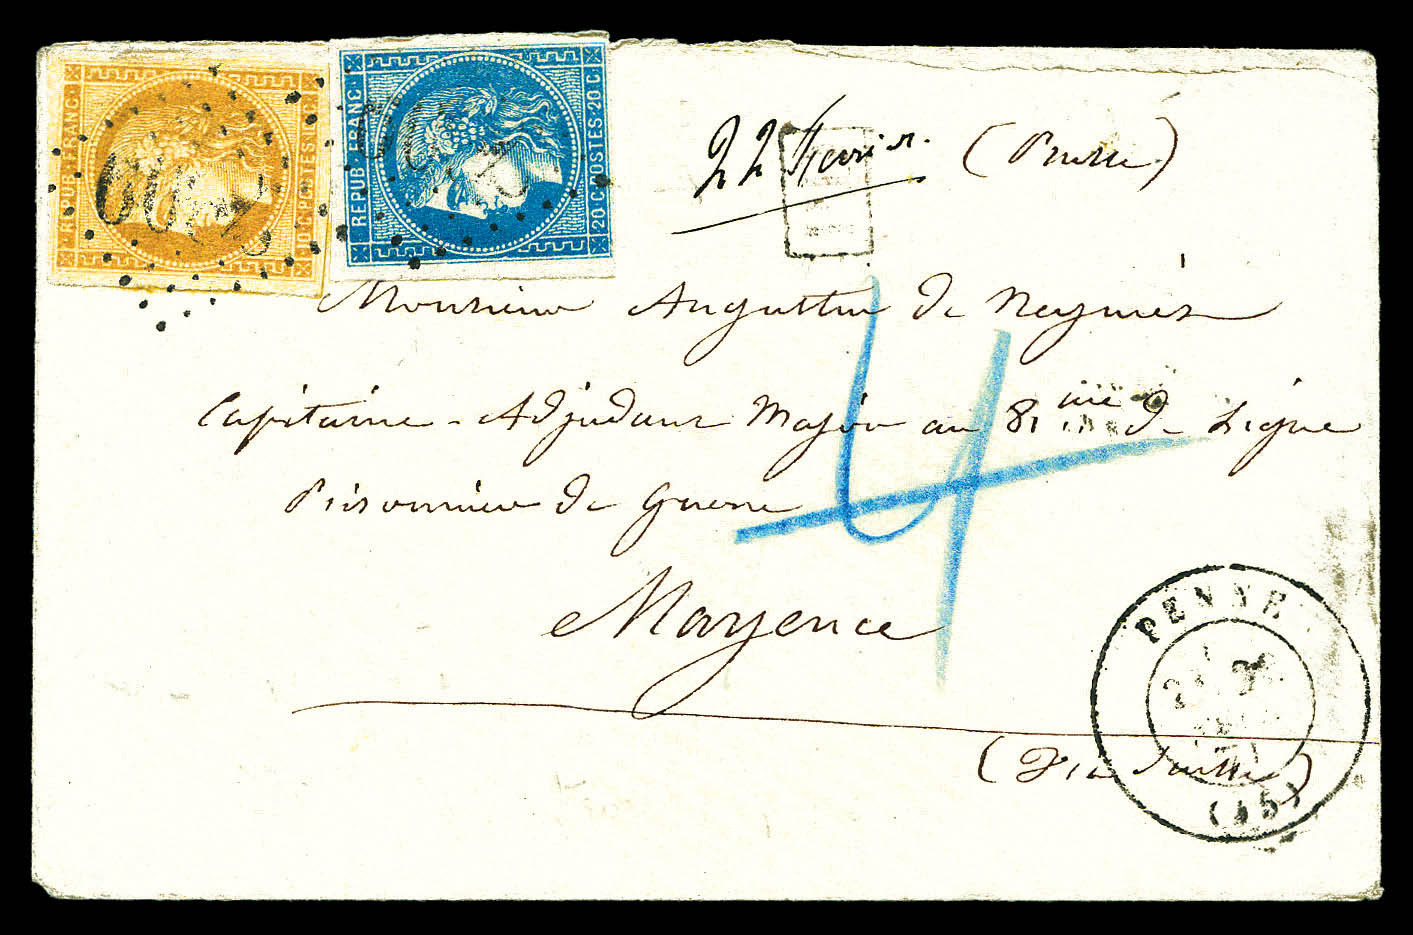 REPUB. FRANC
10 C. POSTES 10 C.
REPUB. FRANC
20 C. POSTES 20 C.
22 février. (Prusse)
Monsieur Augustin de Neymès
Capitaine - Adjudant Major au 81 ème de Ligne
Prisonnier de Guerre
4
Mayence
(Via Suisse)
PENNE
71
(45)